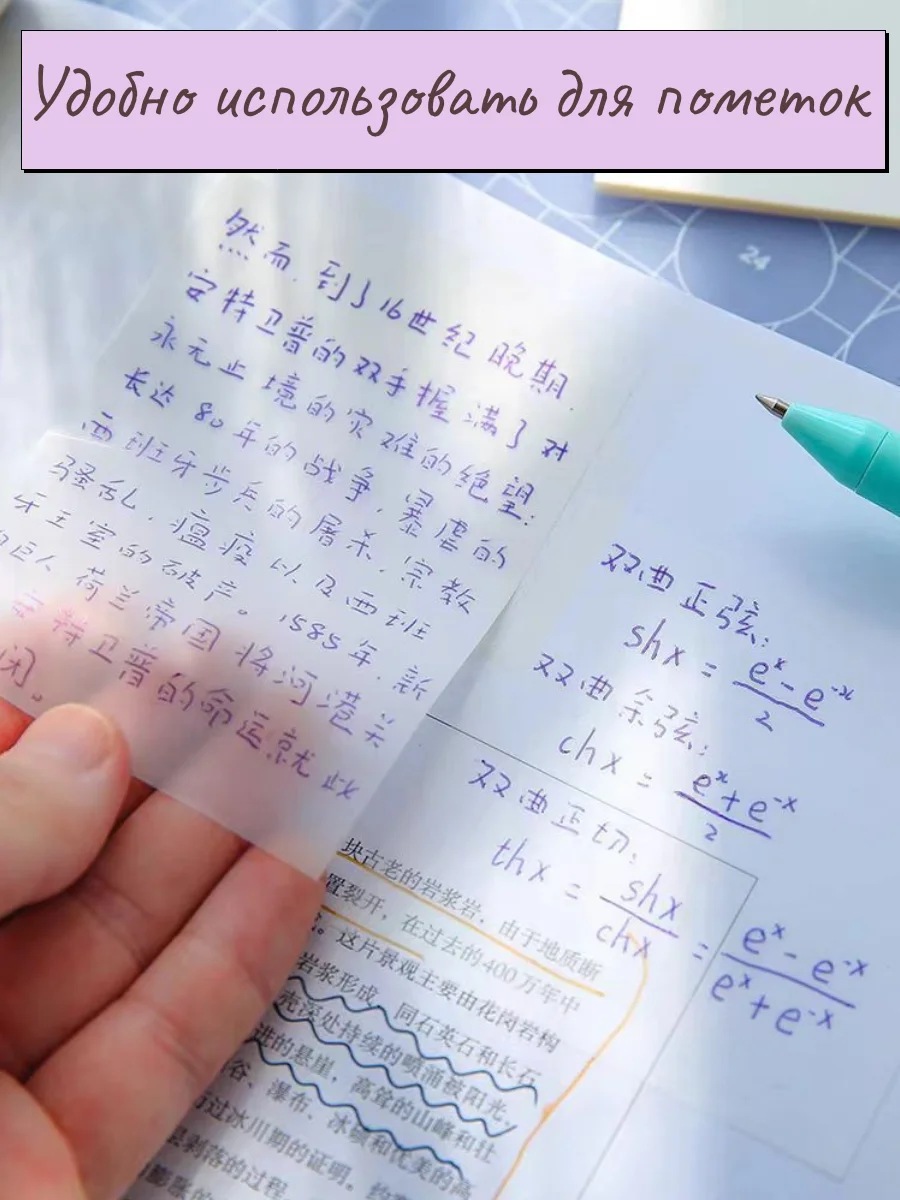 Удобно использовать для пометок
24
然而.到了16世纪晚期
安特卫普的双手握满了对
永无止境的灾难的绝望:
长达80年的战争,暴虐的
西班牙步兵的屠杀.宗教
骚乱.瘟疫以及西班
牙王室的破产。1585年.新
巨人荷兰帝国将河港关
安特卫普的命运就此
闭。
双曲正弦:
shx = e^x - e^-x / 2
双曲余弦:
chx = e^x + e^-x / 2
双曲正切:
thx = shx / chx = e^x - e^-x / e^x + e^-x
块古老的岩浆岩,由于地质断
置裂开,在过去的400万年中
。这片景观主要由花岗岩构
岩浆形成,同石英石和长石
壳深处持续的喷涌鼓阳光,
进的悬崖,高耸的山峰和壮
谷、瀑布、冰碛和优美的高
过冰川期的证明。
剥落的过程,
膨胀的